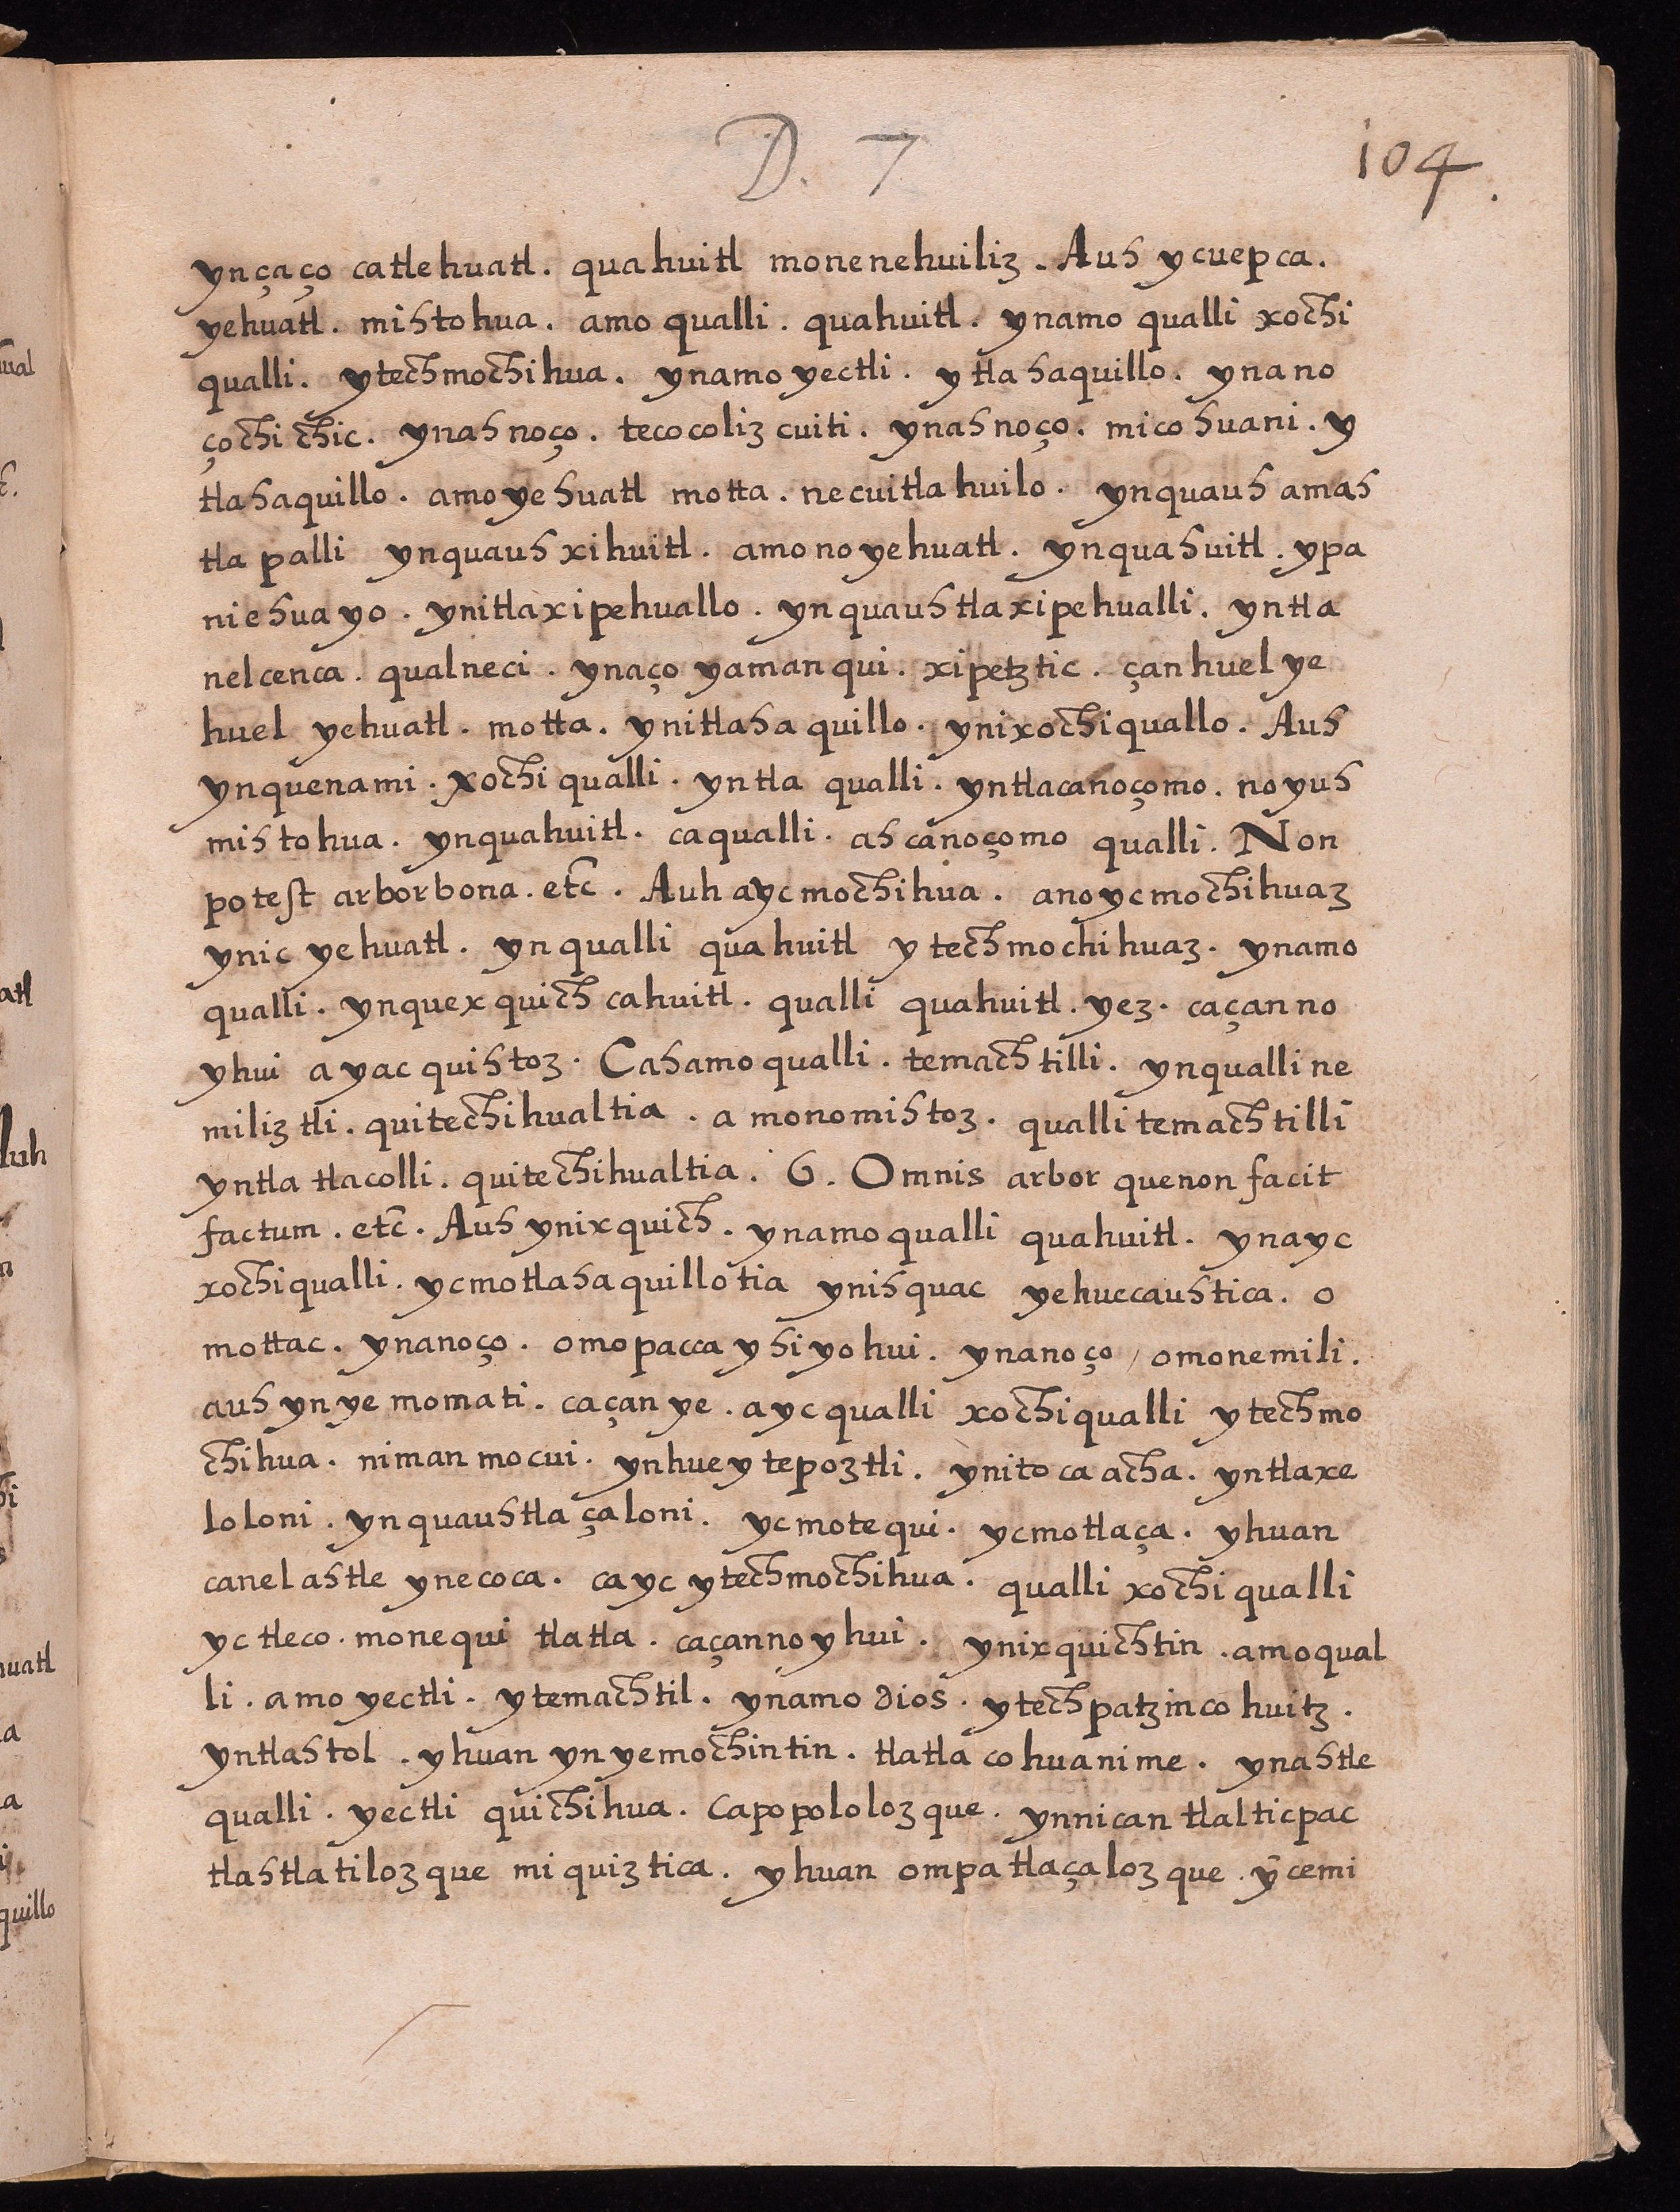 D. 7
104.
ynçaço catlehuatl. quahuitl monenehuiliz. Auh ycuepca.
yehuatl. mihtohua. amo qualli. quahuitl. ynamo qualli xochi
qualli. ytechmochihua. ynamo yectli. ytlahaquillo. ynano
çochichic. ynahnoço. tecocolizcuiti. ynahnoço. micohuani. y
tlahaquillo. amoyehuatl motta. necuitlahuilo. ynquauhamah
tlapalli ynquauhxihuitl. amonoyehuatl. ynquahuitl. ypa
niehuayo. ynitlaxipehuallo. ynquauhtlaxipehualli. yntla
nelcenca. qualneci. ynaço yamanqui. xipetztic. çanhuelye
huel yehuatl. motta. ynitlahaquillo. ynixochiquallo. Auh
ynquenami. xochiqualli. yntla qualli. yntlacanoçomo. noyuh
mihtohua. ynquahuitl. caqualli. ahcanoçomo qualli. Non
potest arborbona. etc. Auh aycmochihua. anoycmochihuaz
ynic yehuatl. ynqualli quahuitl ytechmochihuaz. ynamo
qualli. ynquexquichcahuitl. qualli quahuitl. yez. caçanno
yhui ayac quihtoz. Cahamoqualli. temachtilli. ynqualline
miliztli. quitechihualtia. amonomihtoz. qualli temachtilli
yntla tlacolli. quitechihualtia. G. Omnis arbor quenon facit
factum. etc. Auh ynixquich. ynamoqualli quahuitl. ynayc
xochiqualli. ycmotlahaquillotia ynihquac yehuccauhtica. o
mottac. ynanoço. omopacca yhiyohui. ynanoço, omonemili.
auh ynye momati. caçanye. aycqualli xochiqualli ytechmo
chihua. niman mocui. ynhuey tepoztli. ynitoca acha. yntlaxe
loloni. ynquauhtlaçaloni. ycmotequi. ycmotlaça. yhuan
canelahtle ynecoca. cayc ytechmochihua. qualli xochiqualli
yctleco. monequi tlatla. caçannoyhui. ynixquichtin. amoqual
li. amo yectli. ytemachtil. ynamo dios. ytechpatzinco huitz.
yntlahtol. yhuan ynyemochintin. tlatlacohuanime. ynahtle
qualli. yectli quichihua. Capopololozque. ynnican tlalticpac
tlahtlatilozque miquiztica. yhuan ompatlaçalozque. ȳcemi